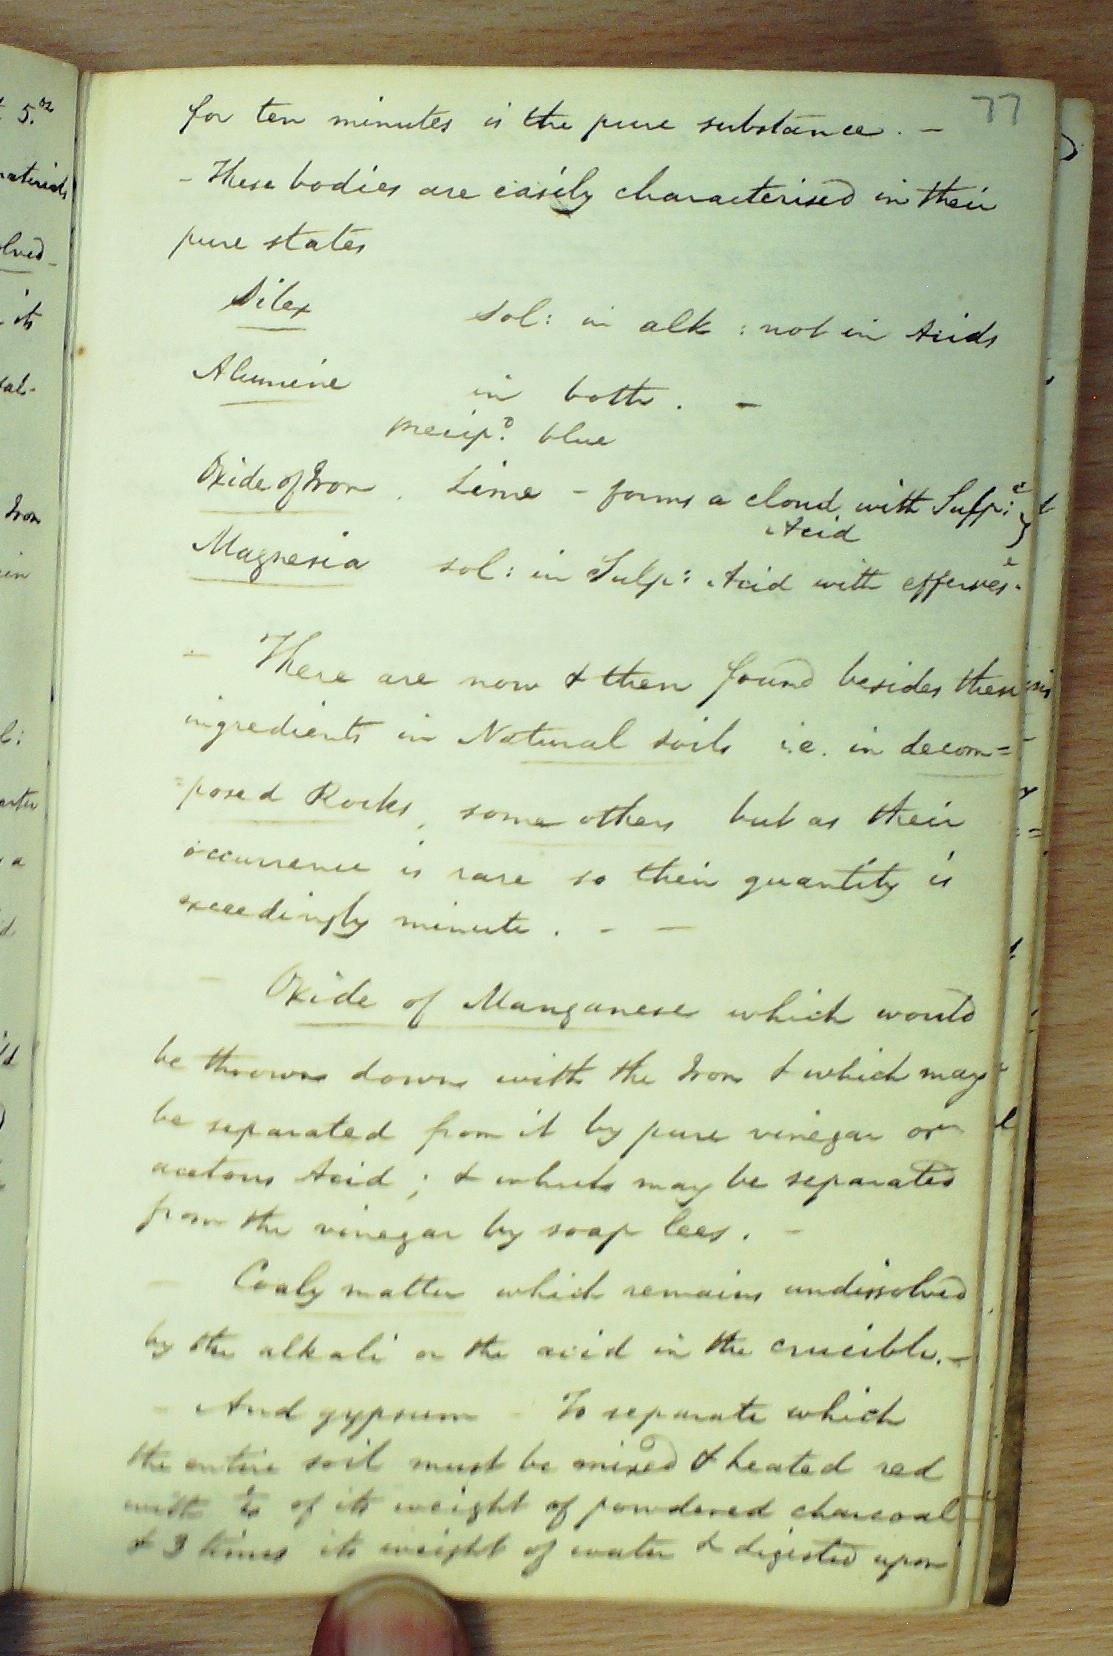 77
for ten minutes is the pure substance. –
– These bodies are easily characterised in their
pure states
Silex sol: in alk: not in Acids
Alumine in both. –
precip.d blue
Oxide of Iron. Lime – forms a cloud with Sulp:c
Acid
Magnesia sol: in Sulp: Acid with efferves:e
– There are now & then found besides these
ingredients in Natural soils i.e. in decom=
=posed Rocks, some others but as their
occurrence is rare so their quantity is
exceedingly minute. – –
– Oxide of Manganese which would
be thrown down with the Iron & which may
be separated from it by pure vinegar or
acetous Acid; & which may be separated
from the vinegar by soap lees. –
– Coaly matter which remains undissolved
by the alkali or the acid in the crucible. –
– And gypsum – To separate which
the entire soil must be mixed & heated red
with of its weight of powdered charcoal
& 3 times its weight of water & digested upon